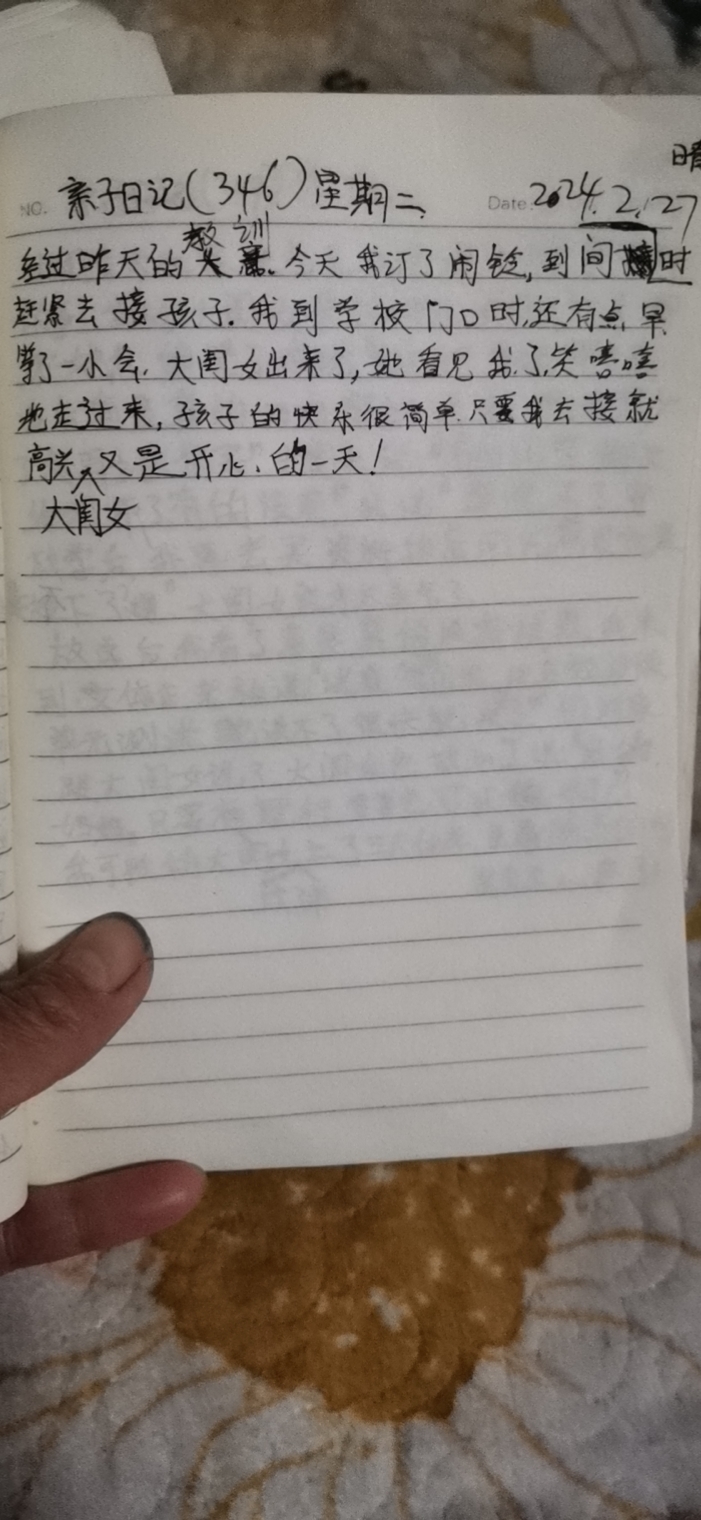 晴
NO. 亲子日记(346)星期二 Date 2024.2.27
教训
经过昨天的大意.今天我订了闹铃,到间时
赶紧去接孩子.我到学校门口时,还有点早
等了一小会.大闺女出来了,她看见我了,笑嘻嘻
地走过来,孩子的快乐很简单.只要我去接就
高兴 又是开心、的一天!
大闺女